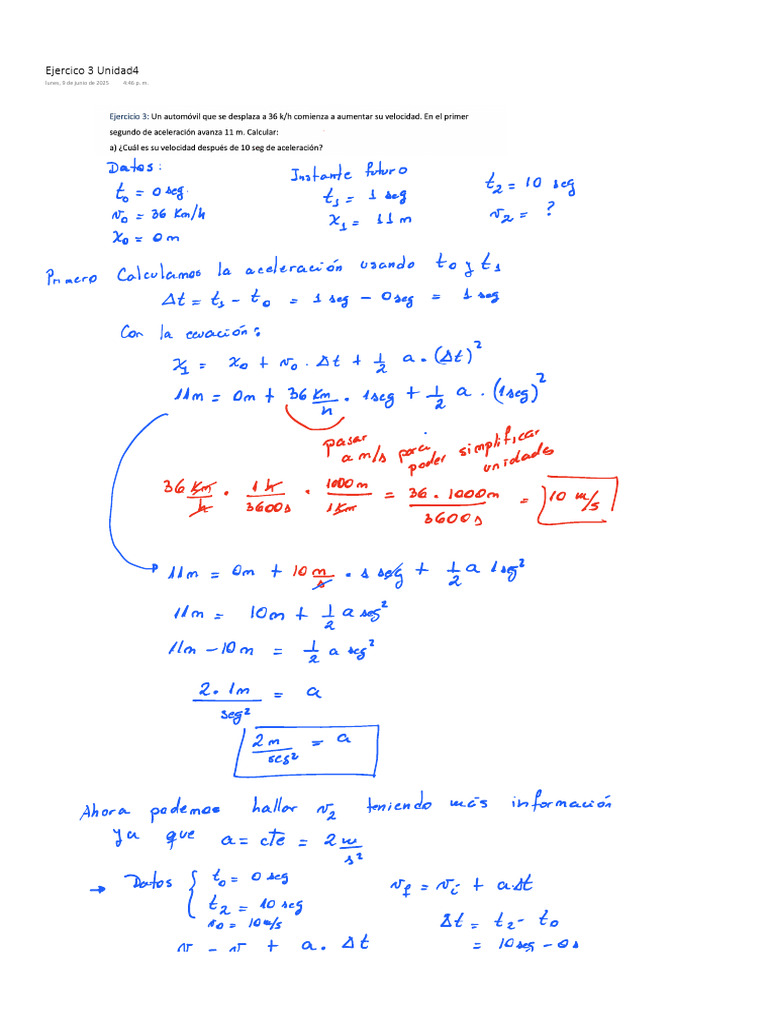 Ejercico 3 Unidad4
lunes, 9 de junio de 2025 4:46 p. m.
Ejercicio 3: Un automóvil que se desplaza a 36 k/h comienza a aumentar su velocidad. En el primer
segundo de aceleración avanza 11 m. Calcular:
a) ¿Cuál es su velocidad después de 10 seg de aceleración?
Datos: Instante futuro
t₀ = 0 seg. t₁ = 1 seg t₂ = 10 seg
v₀ = 36 Km/h x₁ = 11 m v₂ = ?
x₀ = 0 m
Primero Calculamos la aceleración usando t₀ y t₁
Δt = t₁ - t₀ = 1 seg - 0 seg = 1 seg
Con la ecuación:
x₁ = x₀ + v₀ . Δt + 1/2 a . (Δt)²
11m = 0m + 36 Km/h . 1seg + 1/2 a . (1seg)²
pasar a m/s para poder simplificar unidades
36 Km/h . 1h/3600s . 1000m/1Km = 36 . 1000m/3600s = 10 m/s
11m = 0m + 10 m/s . 1 seg + 1/2 a 1seg²
11m = 10m + 1/2 a seg²
11m - 10m = 1/2 a seg²
2 . 1m/seg² = a
2m/seg² = a
Ahora podemos hallar v₂ teniendo más información
ya que a = cte = 2 m/s²
→ Datos { t₀ = 0 seg v_f = v_i + a Δt
t₂ = 10 seg Δt = t₂ - t₀
v₀ = 10 m/s = 10seg - 0s
v - v + a . Δt